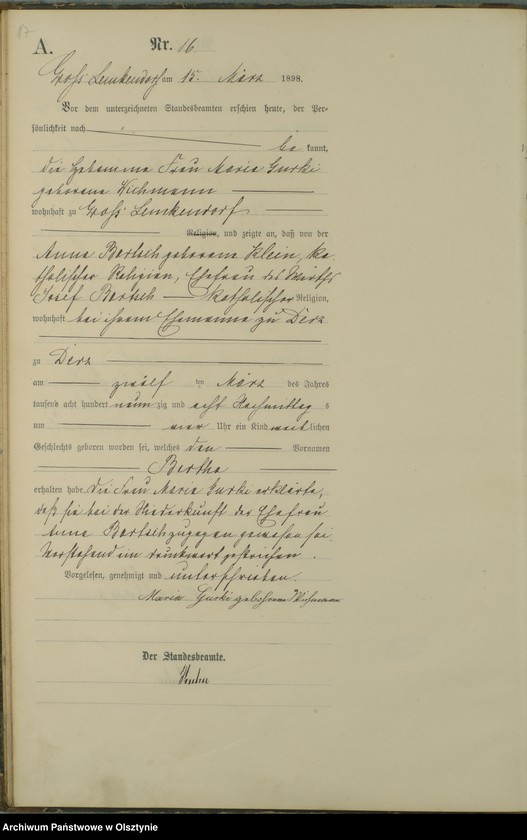 17
A.
Nr. 16
Groß Lemkendorf am 15. März 1898.
Vor dem unterzeichneten Standesbeamten erschien heute, der Per-
sönlichkeit nach
be kannt,
die Hebamme Frau Maria Gurki
geborene Wichmann
wohnhaft zu Groß Lemkendorf
Religion, und zeigte an, daß von der
Anna Bertsch geborene Klein, ka-
tholischer Religion, Ehefrau des Wirths
Josef Bertsch katholischer Religion,
wohnhaft bei ihrem Ehemanne zu Derz
zu Derz
am zwölf ten März des Jahres
tausend acht hundert neun zig und acht Nachmittag s
um vier Uhr ein Kind weib lichen
Geschlechts geboren worden sei, welches den Vornamen
Bertha
erhalten habe. Die Frau Maria Gurki erklärte,
daß sie bei der Niederkunft der Ehefrau
Anna Bertsch zugegen gewesen sei.
Vorstehend ein Druckwort gestrichen.
Vorgelesen, genehmigt und unterschrieben.
Maria Gurki geborene Wichmann
Der Standesbeamte.
Archiwum Państwowe w Olsztynie